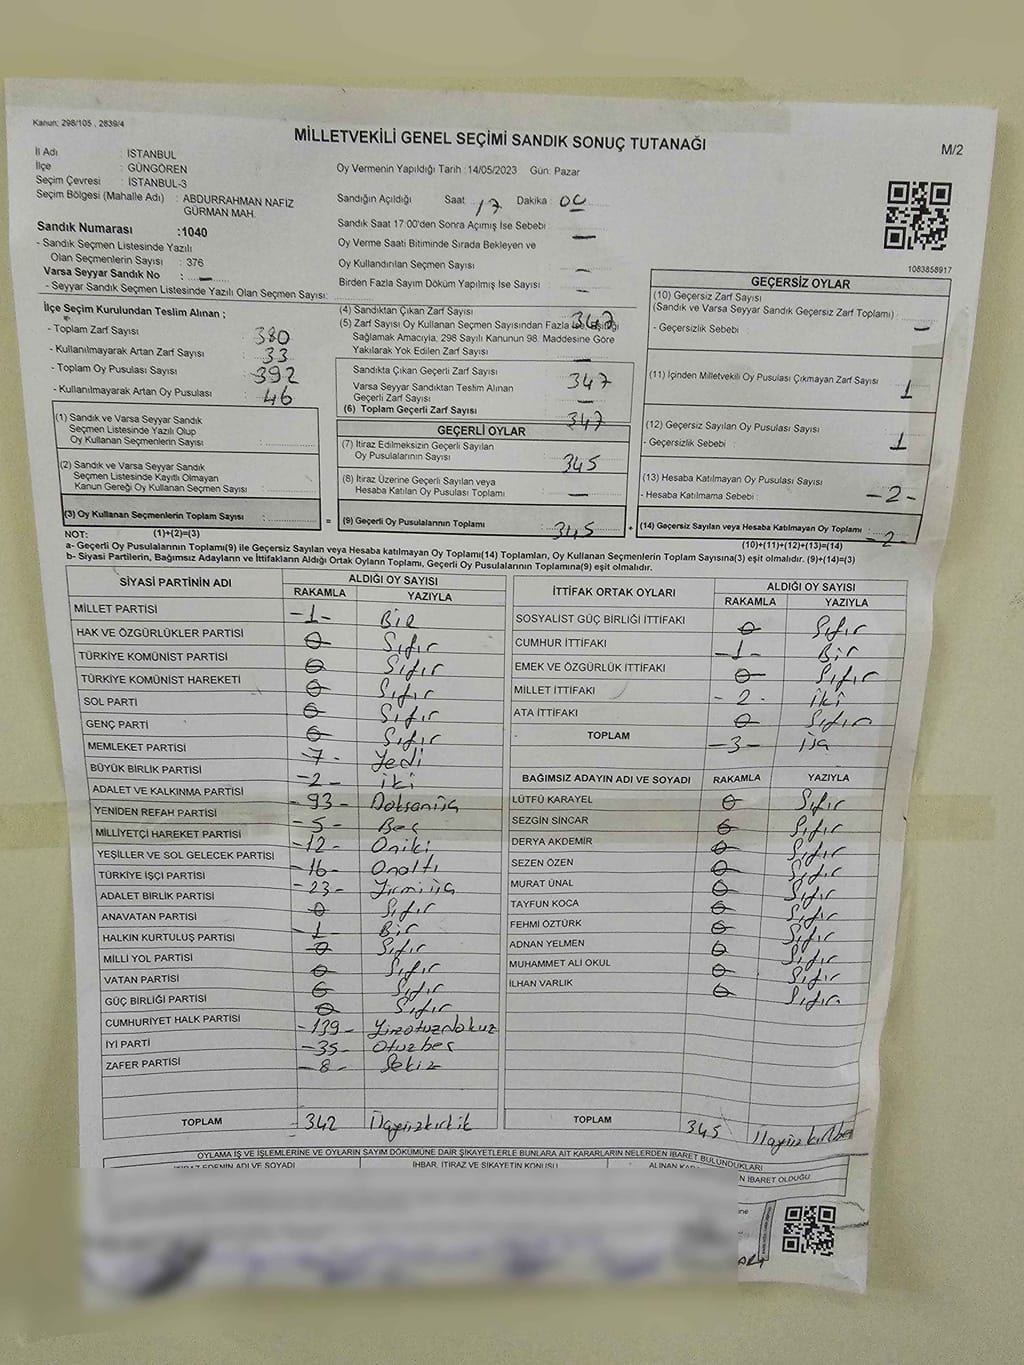 Kanun: 298/105 , 2839/4
MİLLETVEKİLİ GENEL SEÇİMİ SANDIK SONUÇ TUTANAĞI
M/2
İl Adı : İSTANBUL
İlçe : GÜNGÖREN
Seçim Çevresi : İSTANBUL-3
Seçim Bölgesi (Mahalle Adı) : ABDURRAHMAN NAFIZ
GÜRMAN MAH.
Sandık Numarası :1040
- Sandık Seçmen Listesinde Yazılı
Olan Seçmenlerin Sayısı : 376
Varsa Seyyar Sandık No : —
- Seyyar Sandık Seçmen Listesinde Yazılı Olan Seçmen Sayısı:
Oy Vermenin Yapıldığı Tarih :14/05/2023 Gün: Pazar
Sandığın Açıldığı Saat 17 Dakika : 00
Sandık Saat 17:00'den Sonra Açımış İse Sebebi : —
Oy Verme Saati Bitiminde Sırada Bekleyen ve
Oy Kullandırılan Seçmen Sayısı —
Birden Fazla Sayım Döküm Yapılmış İse Sayısı : —
1083858917
İlçe Seçim Kurulundan Teslim Alınan ;
- Toplam Zarf Sayısı 380
- Kullanılmayarak Artan Zarf Sayısı : 33
- Toplam Oy Pusulası Sayısı : 392
- Kullanılmayarak Artan Oy Pusulası : 46
(1) Sandık ve Varsa Seyyar Sandık
Seçmen Listesinde Yazılı Olup
Oy Kullanan Seçmenlerin Sayısı :
(2) Sandık ve Varsa Seyyar Sandık
Seçmen Listesinde Kayıtlı Olmayan
Kanun Gereği Oy Kullanan Seçmen Sayısı :
(3) Oy Kullanan Seçmenlerin Toplam Sayısı :
(1)+(2)=(3)
(4) Sandıktan Çıkan Zarf Sayısı 347
(5) Zarf Sayısı Oy Kullanan Seçmen Sayısından Fazla ise, Eşitliği
Sağlamak Amacıyla, 298 Sayılı Kanunun 98. Maddesine Göre
Yakılarak Yok Edilen Zarf Sayısı : —
Sandıkta Çıkan Geçerli Zarf Sayısı : 347
Varsa Seyyar Sandıktan Teslim Alınan
Geçerli Zarf Sayısı : —
(6) Toplam Geçerli Zarf Sayısı 347
GEÇERLİ OYLAR
(7) İtiraz Edilmeksizin Geçerli Sayılan
Oy Pusulalarının Sayısı : 345
(8) İtiraz Üzerine Geçerli Sayılan veya
Hesaba Katılan Oy Pusulası Toplamı : —
= (9) Geçerli Oy Pusulalarının Toplamı : 345 +
GEÇERSİZ OYLAR
(10) Geçersiz Zarf Sayısı
(Sandık ve Varsa Seyyar Sandık Geçersiz Zarf Toplamı) :
- Geçersizlik Sebebi : —
(11) İçinden Milletvekili Oy Pusulası Çıkmayan Zarf Sayısı : 1
(12) Geçersiz Sayılan Oy Pusulası Sayısı :
- Geçersizlik Sebebi : 1
(13) Hesaba Katılmayan Oy Pusulası Sayısı :
- Hesaba Katılmama Sebebi : -2-
(14) Geçersiz Sayılan veya Hesaba Katılmayan Oy Toplamı : -2-
(10)+(11)+(12)+(13)=(14)
NOT:
a- Geçerli Oy Pusulalarının Toplamı(9) ile Geçersiz Sayılan veya Hesaba katılmayan Oy Toplamı(14) Toplamları, Oy Kullanan Seçmenlerin Toplam Sayısına(3) eşit olmalıdır. (9)+(14)=(3)
b- Siyasi Partilerin, Bağımsız Adayların ve İttifakların Aldığı Ortak Oyların Toplamı, Geçerli Oy Pusulalarının Toplamına(9) eşit olmalıdır.
SİYASİ PARTİNİN ADI ALDIĞI OY SAYISI
RAKAMLA YAZIYLA
MİLLET PARTİSİ -1- Bir
HAK VE ÖZGÜRLÜKLER PARTİSİ 0 Sıfır
TÜRKİYE KOMÜNİST PARTİSİ 0 Sıfır
TÜRKİYE KOMÜNİST HAREKETİ 0 Sıfır
SOL PARTİ 0 Sıfır
GENÇ PARTİ 0 Sıfır
MEMLEKET PARTİSİ -7- Yedi
BÜYÜK BİRLİK PARTİSİ -2- iki
ADALET VE KALKINMA PARTİSİ -93- Doksanüç
YENİDEN REFAH PARTİSİ -5- Beş
MİLLİYETÇİ HAREKET PARTİSİ -12- Oniki
YEŞİLLER VE SOL GELECEK PARTİSİ -16- Onaltı
TÜRKİYE İŞÇİ PARTİSİ -23- Yirmiüç
ADALET BİRLİK PARTİSİ 0 Sıfır
ANAVATAN PARTİSİ -1- Bir
HALKIN KURTULUŞ PARTİSİ 0 Sıfır
MİLLİ YOL PARTİSİ 0 Sıfır
VATAN PARTİSİ 0 Sıfır
GÜÇ BİRLİĞİ PARTİSİ 0 Sıfır
CUMHURİYET HALK PARTİSİ -139- Yüzotuzdokuz
İYİ PARTİ -35- Otuzbeş
ZAFER PARTİSİ -8- Sekiz
TOPLAM -342 Üçyüzkırkik
İTTİFAK ORTAK OYLARI ALDIĞI OY SAYISI
RAKAMLA YAZIYLA
SOSYALİST GÜÇ BİRLİĞİ İTTİFAKI 0 Sıfır
CUMHUR İTTİFAKI -1- Bir
EMEK VE ÖZGÜRLÜK İTTİFAKI 0 Sıfır
MİLLET İTTİFAKI -2- İki
ATA İTTİFAKI 0 Sıfır
TOPLAM -3- üç
BAĞIMSIZ ADAYIN ADI VE SOYADI RAKAMLA YAZIYLA
LÜTFÜ KARAYEL 0 Sıfır
SEZGİN SİNCAR 0 Sıfır
DERYA AKDEMİR 0 Sıfır
SEZEN ÖZEN 0 Sıfır
MURAT ÜNAL 0 Sıfır
TAYFUN KOCA 0 Sıfır
FEHMİ ÖZTÜRK 0 Sıfır
ADNAN YELMEN 0 Sıfır
MUHAMMET ALİ OKUL 0 Sıfır
İLHAN VARLIK 0 Sıfır
TOPLAM 345 Üçyüzkırkbeş
OYLAMA İŞ VE İŞLEMLERİNE VE OYLARIN SAYIM DÖKÜMÜNE DAİR ŞİKAYETLERLE BUNLARA AİT KARARLARIN NELERDEN İBARET BULUNDUKLARI
İTİRAZ EDENİN ADI VE SOYADI İHBAR, İTİRAZ VE ŞİKAYETİN KONUSU ALINAN
N İBARET OLDUĞU